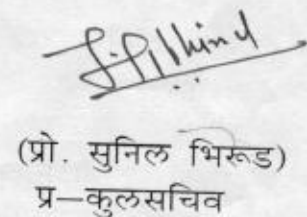 (प्रो. सुनिल भिरूड)
प्र–कुलसचिव